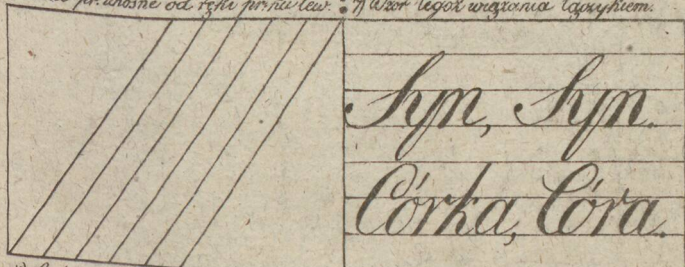 od ręki pr: ku lew: 7) Wzór tegoż wiązania łączykiem.
Syn, Syn.
Córka, Córa.